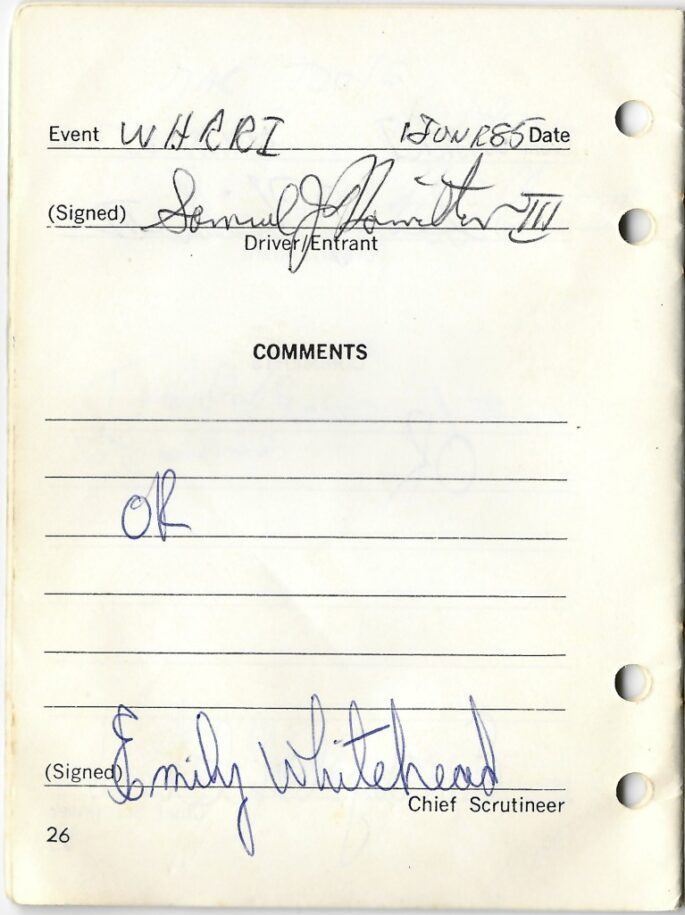 Event WHRRI 1JUNE85 Date
(Signed) Samuel J Hamilton III
Driver/Entrant
COMMENTS
OK
(Signed) Emily Whitehead
Chief Scrutineer
26